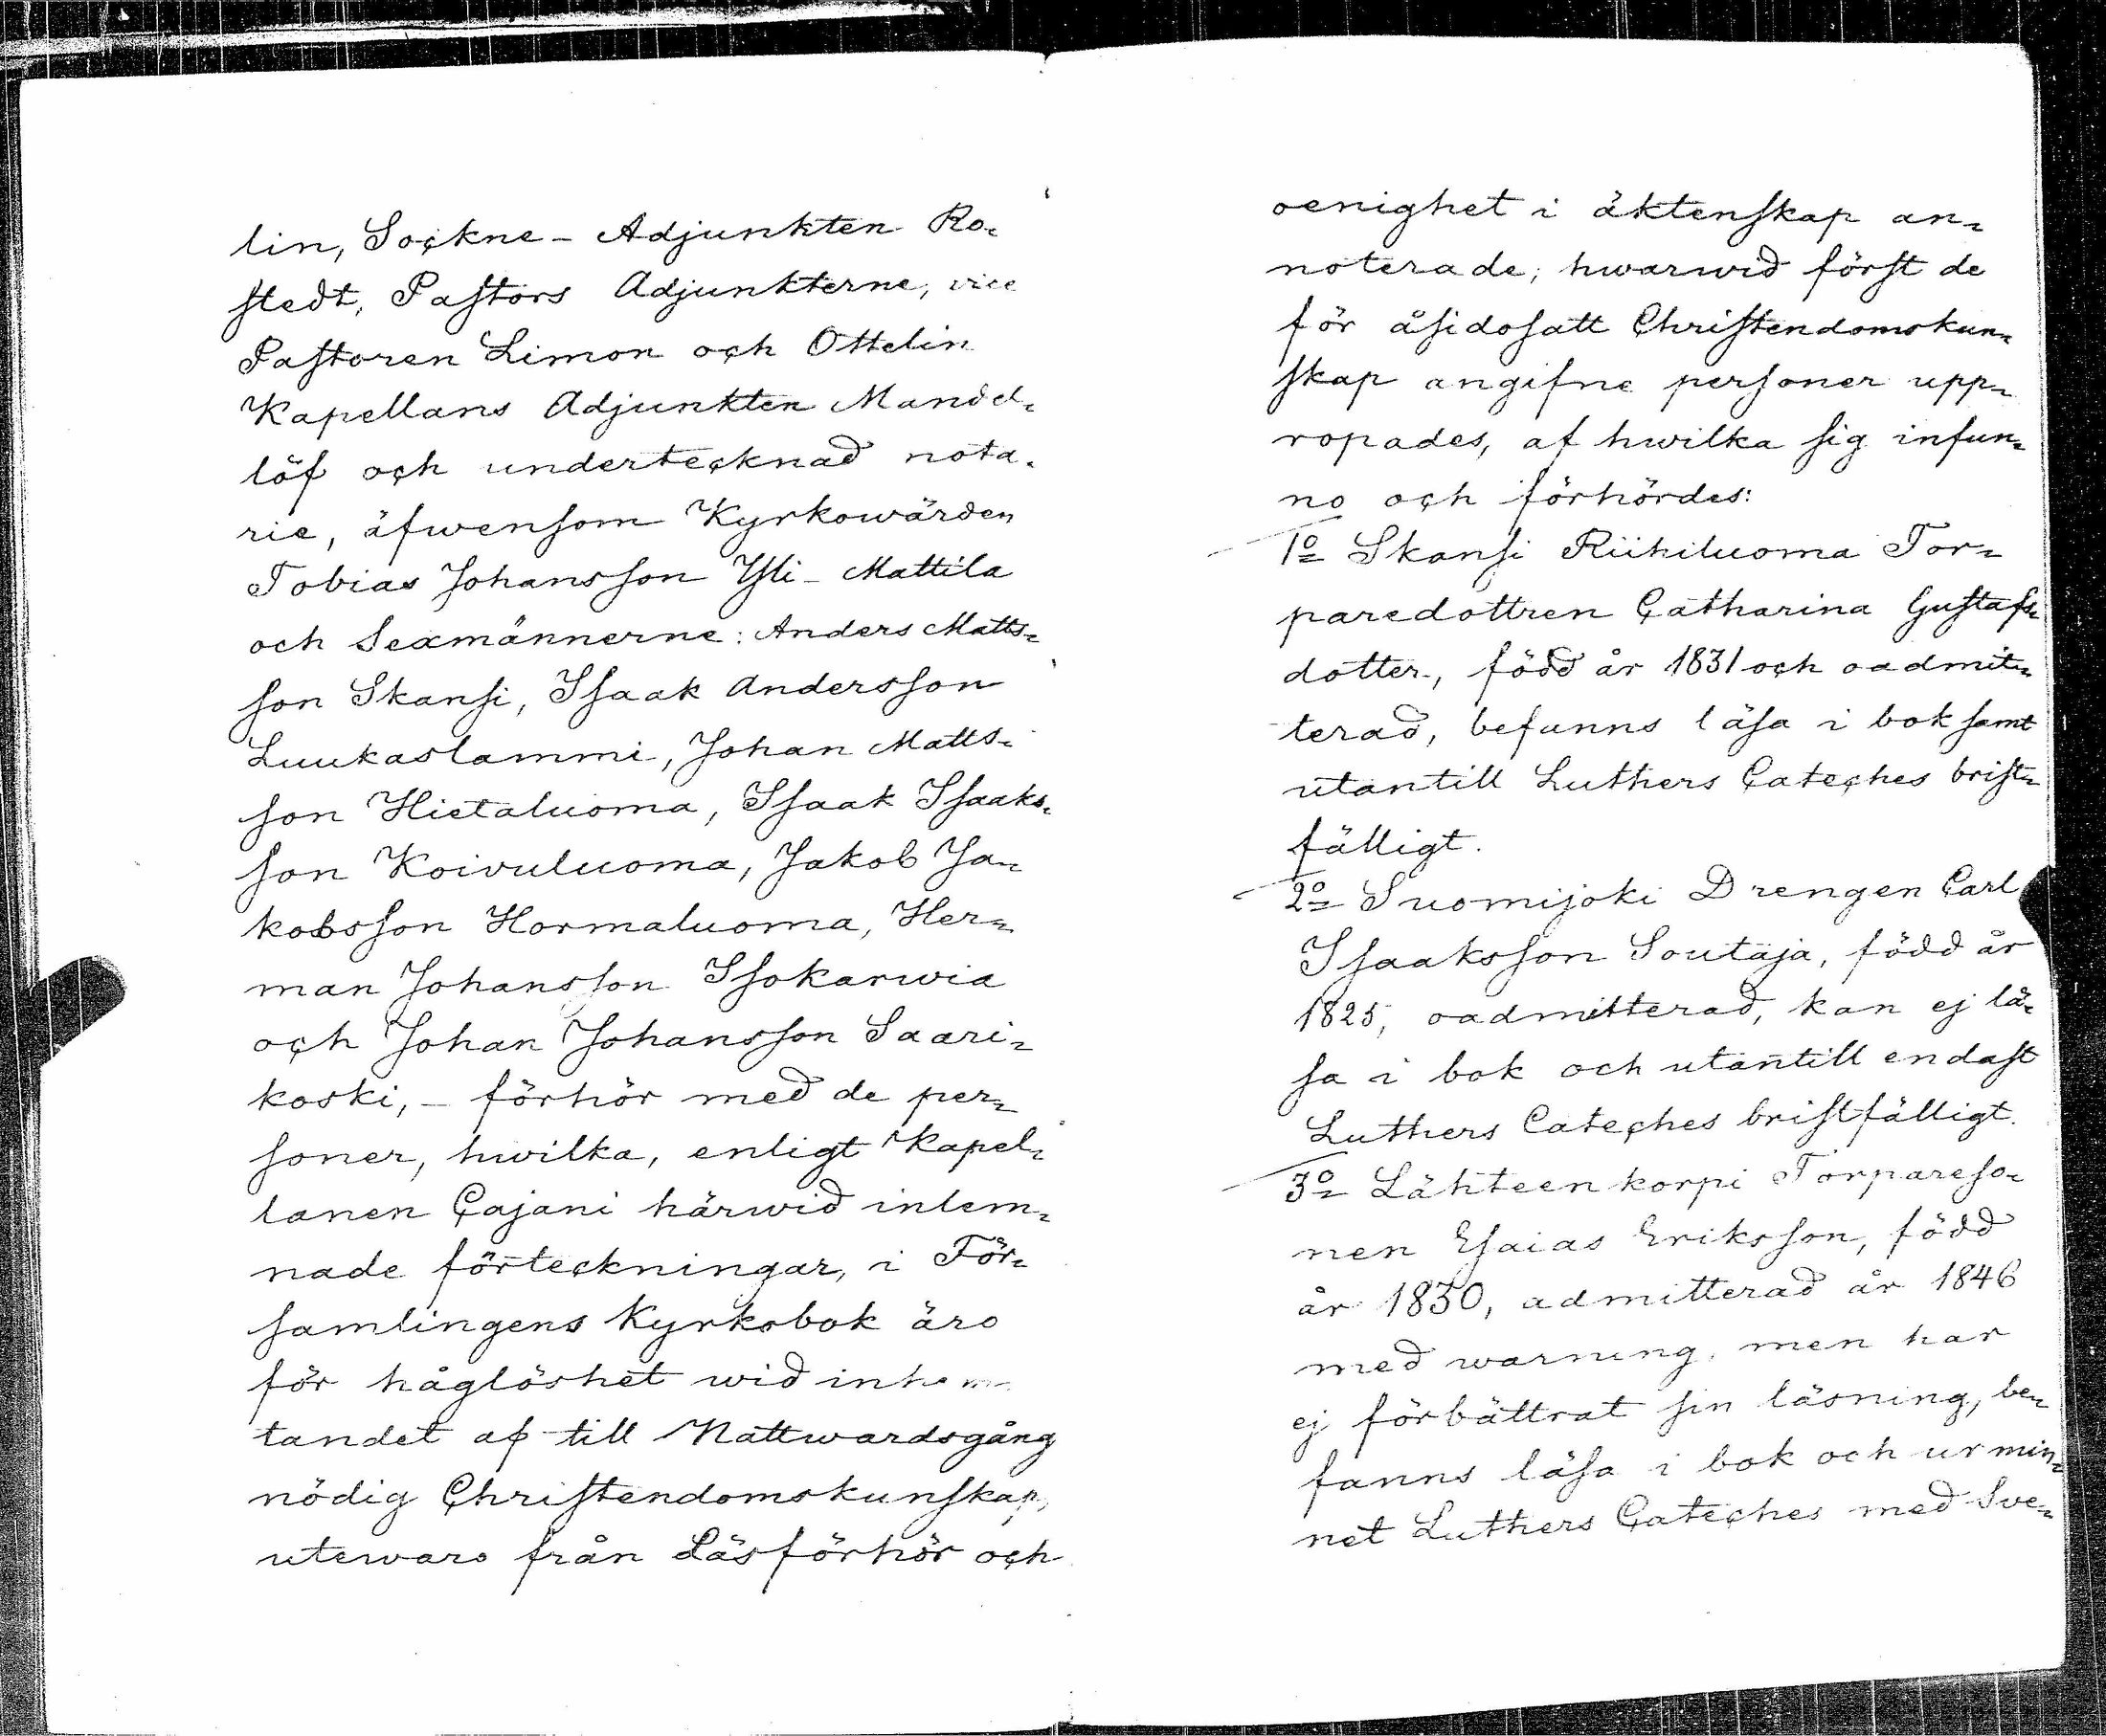 lin, Sockne-Adjunkten Ro-
stedt, Pastors Adjunkterne, vice
Pastoren Limon och Ottelin
Kapellans Adjunkten Mandel-
löf och undertecknad nota-
rie, äfwensom Kyrkowärden
Tobias Johansson Yli-Mattila
och Sexmännerne: Anders Matts-
son Skansi, Isaak Andersson
Luukaslammi, Johan Matts-
son Hietaluoma, Isaak Isaaks-
son Koivuluoma, Jakob Ja-
kobsson Hormaluoma, Her-
man Johansson Isokarwia
och Johan Johansson Saari-
koski, – förhör med de per-
soner, hwilka, enligt Kapel-
lanen Cajani härwid inlem-
nade förteckningar, i För-
samlingens Kyrkobok äro
för håglöshet wid inhem-
tandet af till Nattwardsgång
nödig Christendomskunskap,
utewaro från Läsförhör och
oenighet i äktenskap an-
noterade; hwarwid först de
för åsidosatt Christendomskun-
skap angifne personer upp-
ropades, af hwilka sig infun-
no och förhördes:
1o Skansi Riihiluoma Tor-
paredottren Catharina Gustafs-
dotter, född år 1831 och oadmit-
terad, befunns läsa i bok samt
utantill Luthers Cateches brist-
fälligt.
2o Suomijoki Drengen Carl
Isaaksson Soutaja, född år
1825, oadmitterad, kan ej lä-
sa i bok och utantill endast
Luthers Cateches bristfälligt.
3o Lähteenkorpi Torpareso-
nen Esaias Eriksson, född
år 1830, admitterad år 1846
med warning, men har
ej förbättrat sin läsning, be-
fanns läsa i bok och ur min-
net Luthers Cateches med Sve-